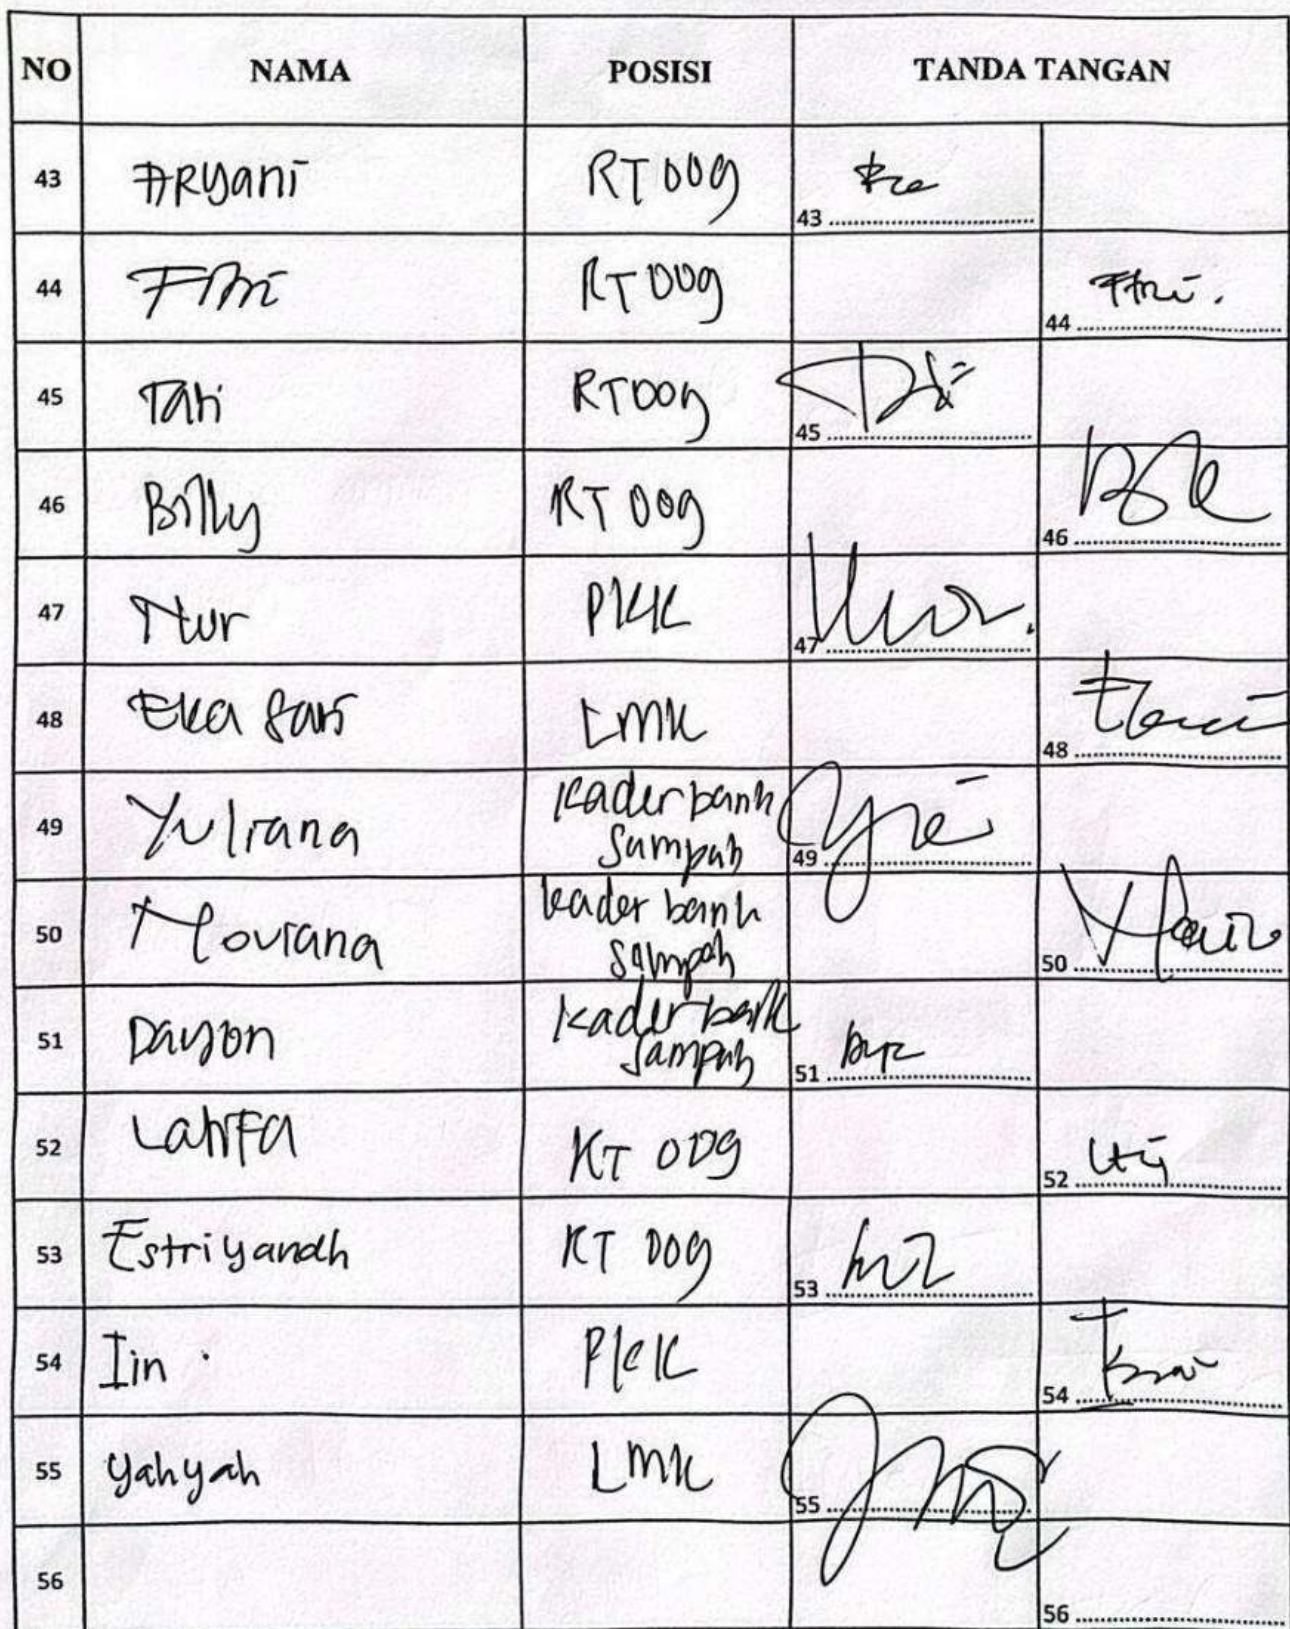 NO NAMA POSISI TANDA TANGAN
43 ARyani RT 009 43
44 Fitri RT 009 44
45 Tati RT 009 45
46 Billy RT 009 46
47 Nur PKK 47
48 Eka Sari LMK 48
49 Yuliana kader bank
sampah 49
50 kader bank
sampah 50
51 Dayon kader bank
sampah 51
52 Latifa RT 009 52
53 Estriyandh RT 009 53
54 Iin PKK 54
55 yahyah LMK 55
56 56